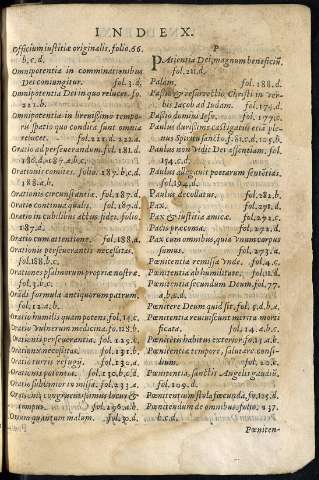 INDEX.
Officium iustitiæ originalis. folio.66.
b.c.d.
Omnipotentia in comminationibus
Dei coniungitur. fol.3.d.
Omnipotentia Dei in quo relucet. fo.
221.b.
Omnipotentia in breuissimo tempo-
ris spatio quo condita sunt omnia
relucet. fol.221.d.222.a.
Oratio ad perseuerandum. fol.181.d.
186.d.187.a.b.c.
Orationis comites. folio. 187.b.c.d.
188.a.b.
Orationis circunstantiæ. fol.187.d.
Oratio continua qualis. fol.187.d.
Oratio in cubilibus actus fides. folio.
187.a.
Oratio cum attentione. fol.188.a.
Orationis perseuerantis necessitas.
fol.188.b.c.
Orationes psalmorum propriæ nostræ.
fol.3.b.c.
Orandi formula antiquorum patrum.
fol.12.a.b.
Oratio humilis quam potens. fol.14.c.
Oratio vulnerum medicina. fo.128.b.
Orationis perseuerantia. fol.129.
Orationis necessitas. fol.131.b.
Oratio turris refugij. fol.130.c.
Orationis potentia. fol.130.b.c.d.
Oratio publicanorum
Orationis congruentissimus locus &
tempus. fol.296.a.b.
Otium quantum malum. fol.30.d.
P
PAtientia Dei, magnum beneficiũ.
fol.211.d.
Palam. fol.188.d.
Passio & resurrectio Christi in ver-
bis Iacob ad Iudam. fol.175.d.
Passio domini Iesu. fol.179.c.
Paulus non vidit Dei essentiam. fol.
154.c.d.
fol.194.d.
Paulus decollatur. fol.281.b.
Pax. fol.291.d.
Pax & iustitia amicæ. fol.292.c.
Pacis præcomia. fol.292.d.
Pax cum omnibus, quia vnum corpus
sumus. fol.293.a.
Pœnitentia remissa vnde. fol.9.c.
Pœnitentia ab humilitate. fol.11.d.
Pœnitentia secundum Deum. fol.77.
a.b.d.
Pœnitere Deum quid sit. fol.9.d.b.a.
Pœnitentia reuiuiscunt merita morti
ficata. fol.14.a.b.c.
Pœnitentis habitus exterior. fo.15.a.d.
Pœnitentiæ tempore, saluare consi-
lium. fol.20.c.
Pœnitentia, sanctis Angelis gaudiũ,
fol.109.d.
Pœnitentium stola fœcunda. fo.105.d.
Pœnitendum de omnibus. folio.237.
b.c.d.
Pœniten-